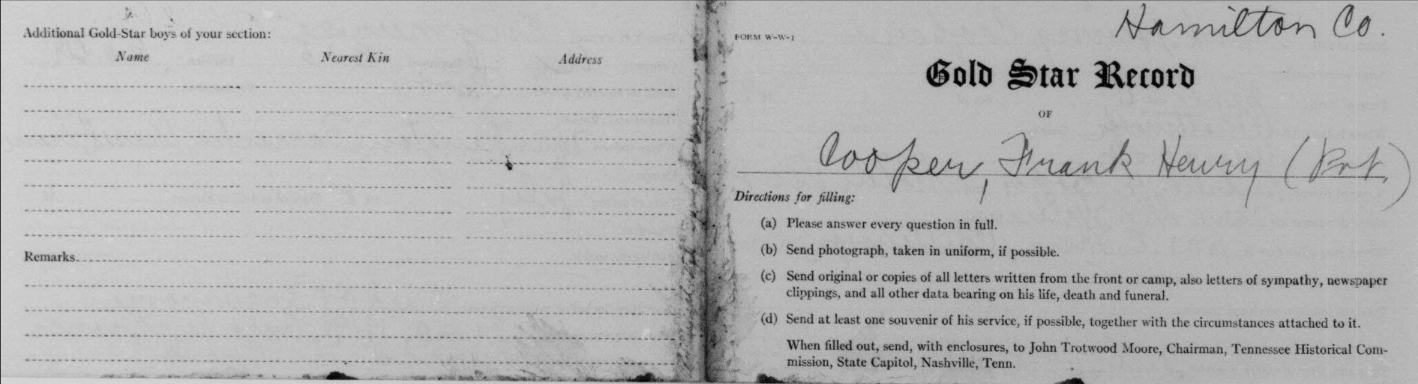 Additional Gold-Star boys of your section:
Name Nearest Kin Address
Remarks
Hamilton Co.
FORM W-W-1
Gold Star Record
OF
Cooper, Frank Henry (Pvt.)
Directions for filling:
(a) Please answer every question in full.
(b) Send photograph, taken in uniform, if possible.
(c) Send original or copies of all letters written from the front or camp, also letters of sympathy, newspaper
clippings, and all other data bearing on his life, death and funeral.
(d) Send at least one souvenir of his service, if possible, together with the circumstances attached to it.
When filled out, send, with enclosures, to John Trotwood Moore, Chairman, Tennessee Historical Com-
mission, State Capitol, Nashville, Tenn.